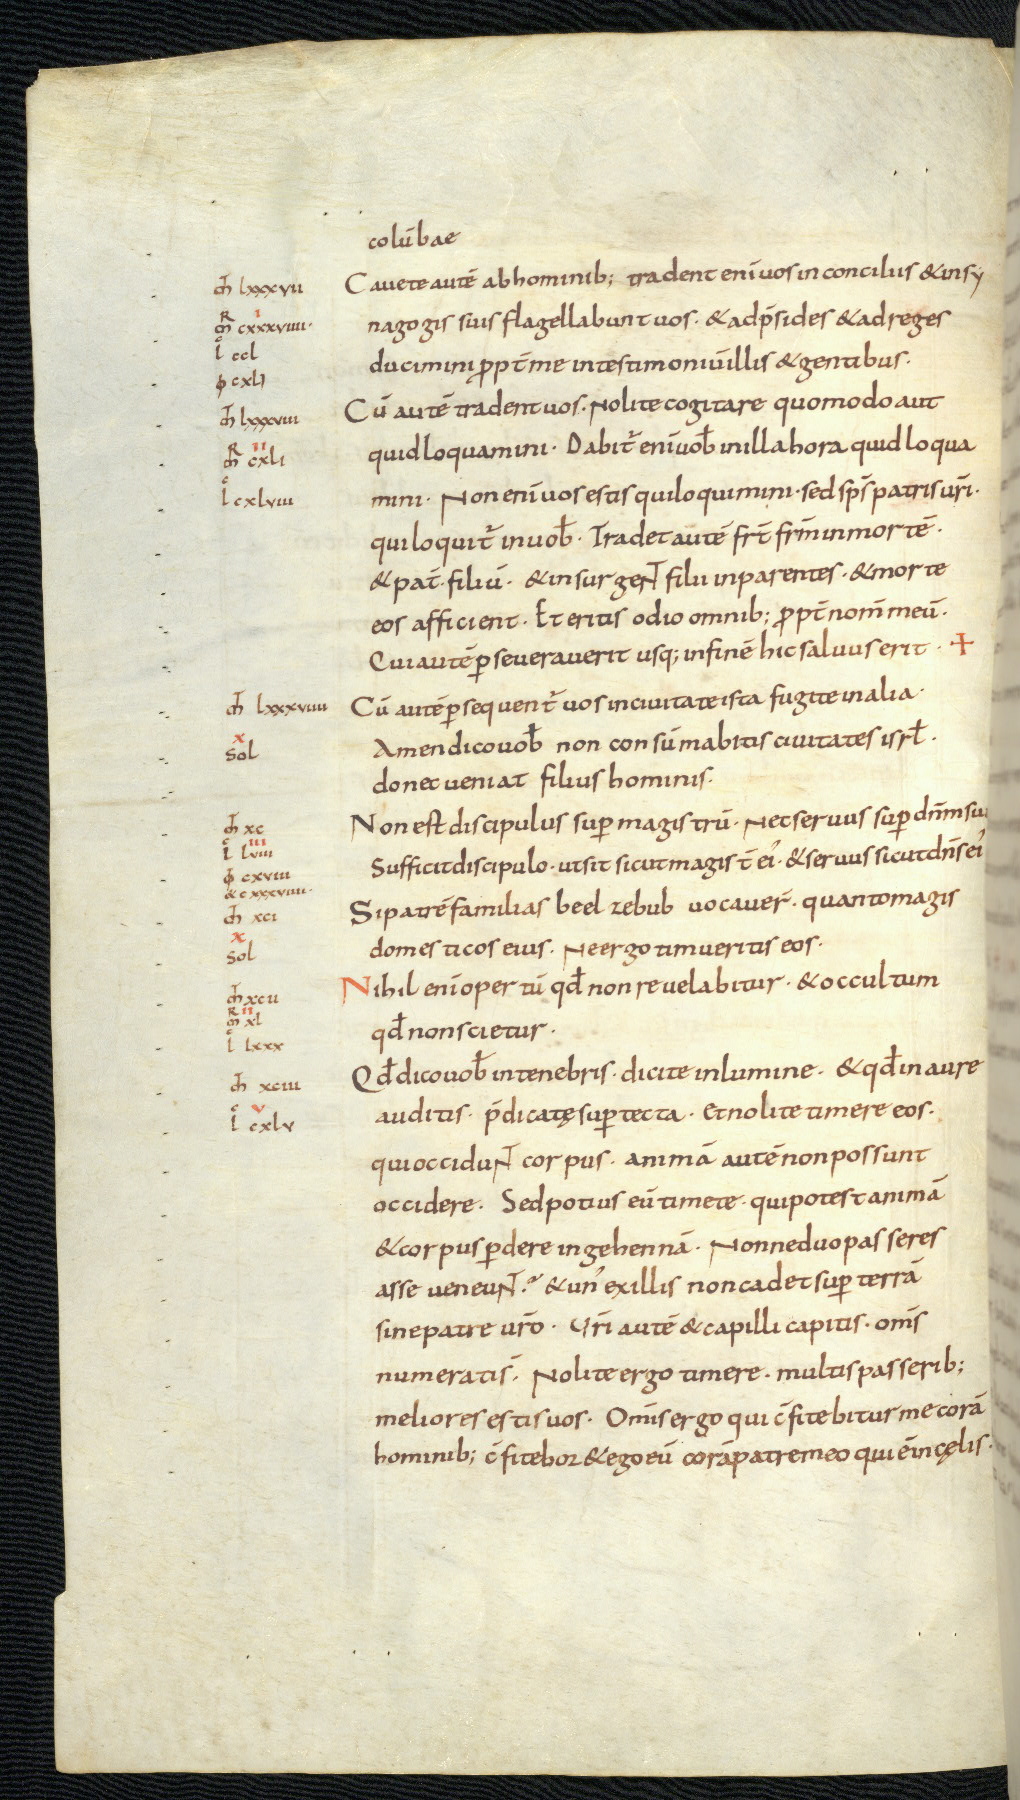 colūbae
m̄ lxxxvii Cavete autē ab hominib; tradent enī vos in conciliis & in sy
mr̄ cxxxviiii· i nagogis suis flagellabunt vos· & ad p̄sides & ad reges
l̄ ccl ducimini ꝓpt̄ me in testimoniū illis & gentibus·
φ cxli
m̄ lxxxviii Cū autē tradent vos· Nolite cogitare quomodo aut
mr̄ cxli ii quid loquamini· Dabit̄ enī vob̄ in illa hora quid loqua
l̄ cxlviii mini· Non enī vos estis qui loquimini· sed sps̄ patris ur̄i·
qui loquit̄ in vob̄· Tradet autē frt̄ fr̄m in mortē·
& pat̄· filiū· & insurgeNT̄ filii in parentes· & morte
eos afficient· Et eritis odio omnib; ꝓpt̄ nom̄ meū·
Qui autē ꝑseveraverit usq; in finē hic salvus erit· +
m̄ lxxxviiii Cū autē ꝑsequent̄ vos in civitate ista fugite in alia·
x sol Amen dico vob̄ non consūmabitis civitates isrl̄·
donec veniat filius hominis·
m̄ xc Non est discipulus suꝑ magistrū· Nec servus suꝑ dn̄m su
l̄ lviii iii Sufficit discipulo· ut sit sicut magist̄ ei'· & servus sicut dn̄s ei'
φ cxviii
& cxxxviiii·
m̄ xci Si patrē familias beelzebub vocaver̄· quanto magis
x sol domesticos eius· Ne ergo timueritis eos·
m̄ xcii Nihil enī opertū qd̄ non revelabitur· & occultum
mr̄ xl ii qd̄ non scietur·
l̄ lxxx
m̄ xciii Qd̄ dico vob̄ in tenebris· dicite in lumine· & qd̄ in aure
l̄ cxlv v auditis· p̄dicatę suꝑ tecta· Et nolite timere eos·
qui occiduNT̄ corpus· animā autē non possunt
occidere· Sed potius eū timete· qui potest animā
& corpus ꝑdere in gehennā· Nonne duo passeres
asse veneuNT̄·? & un' ex illis non cadet suꝑ terrā
sine patre ur̄o· Ur̄i autē & capilli capitis· om̄s
numerati s̄· Nolite ergo timere· multis passerib;
meliores estis vos· Om̄is ergo qui c̄fitebitur me corā
hominib; c̄fitebor & ego eū corā patre meo qui ē in cęlis·